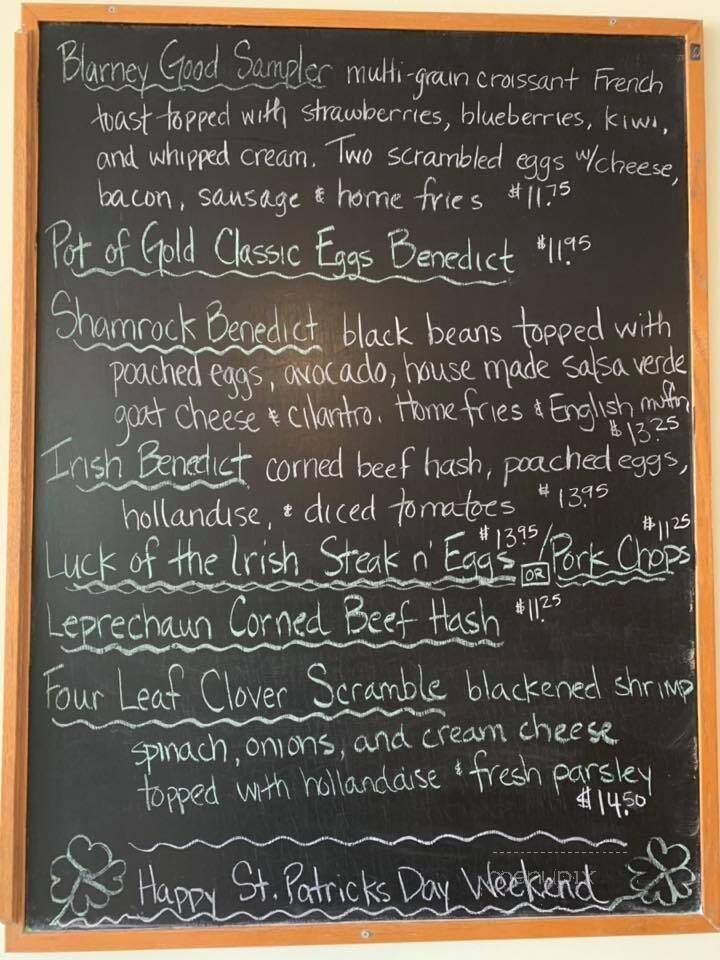 Blarney Good Sampler multi-grain croissant French
toast topped with strawberries, blueberries, kiwi,
and whipped cream. Two scrambled eggs w/cheese,
bacon, sausage & home fries $11.75
Pot of Gold Classic Eggs Benedict $11.95
Shamrock Benedict black beans topped with
poached eggs, avocado, house made salsa verde
goat cheese & cilantro. Home fries & English muffin
$13.25
Irish Benedict corned beef hash, poached eggs,
hollandise, & diced tomatoes $13.95
Luck of the Irish Steak n' Eggs $13.95 / OR Pork Chops $11.25
Leprechaun Corned Beef Hash $11.25
Four Leaf Clover Scramble blackened shrimp
spinach, onions, and cream cheese
topped with hollandaise & fresh parsley
$14.50
Happy St. Patricks Day Weekend
menupix